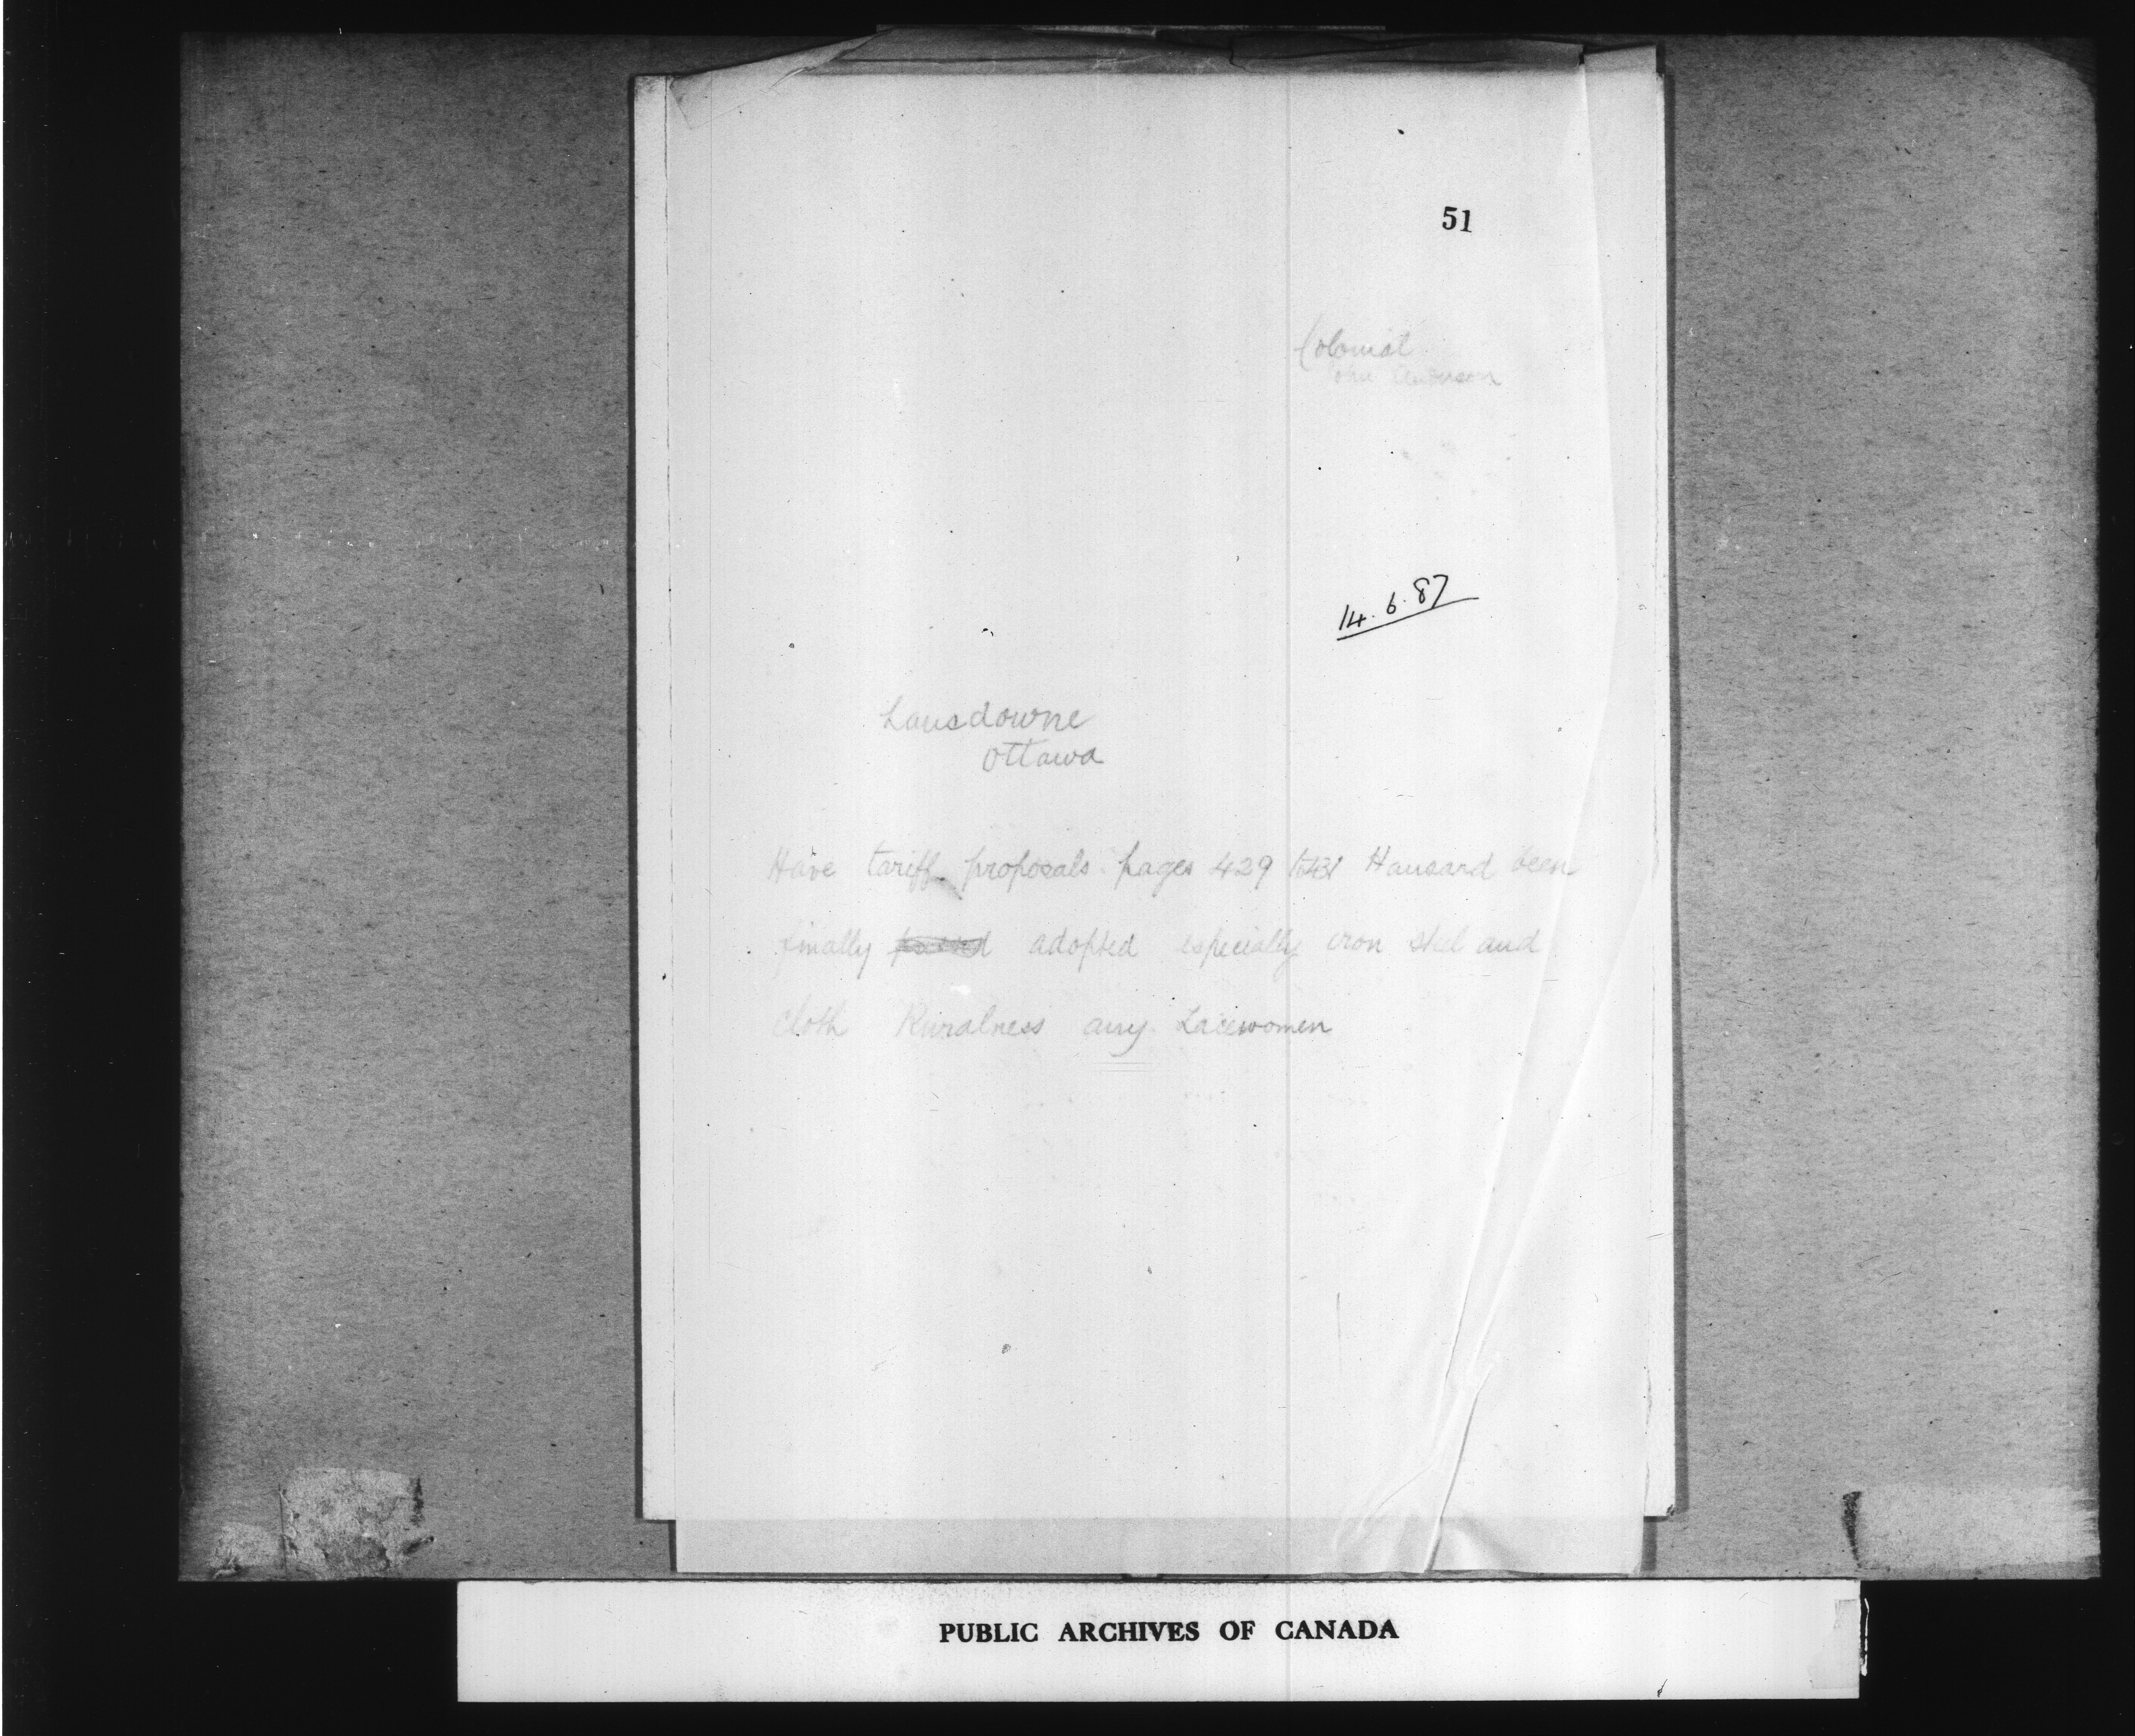 51
Colonial
John Anderson
14.6.87
Lansdowne
Ottawa
Have tariff proposals pages 429 to 431 Hansard been
finally passed adopted especially iron steel and
cloth Ruralness any Lacewomen
PUBLIC ARCHIVES OF CANADA